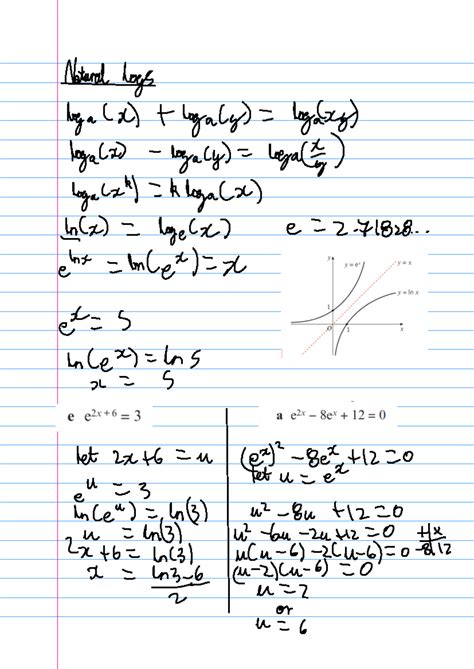 Natural Logs
logₐ(x) + logₐ(y) = logₐ(xy)
logₐ(x) − logₐ(y) = logₐ(x/y)
logₐ(xᵏ) = k logₐ(x)
ln(x) = logₑ(x)    e = 2.71828...
e^(ln x) = ln(e^x) = x
y
y = e^x
y = x
y = ln x
1
O
1
x
e^x = 5
ln(e^x) = ln 5
x = 5
e e^(2x+6) = 3
let 2x+6 = u
e^u = 3
ln(e^u) = ln(3)
u = ln(3)
2x+6 = ln(3)
x = (ln3−6)/2
a e^(2x) − 8e^x + 12 = 0
(e^x)² − 8e^x + 12 = 0
let u = e^x
u² − 8u + 12 = 0
u² − 6u − 2u + 12 = 0
+ | x
u(u−6) −2(u−6) = 0
−8 | 12
(u−2)(u−6) = 0
u = 2
or
u = 6